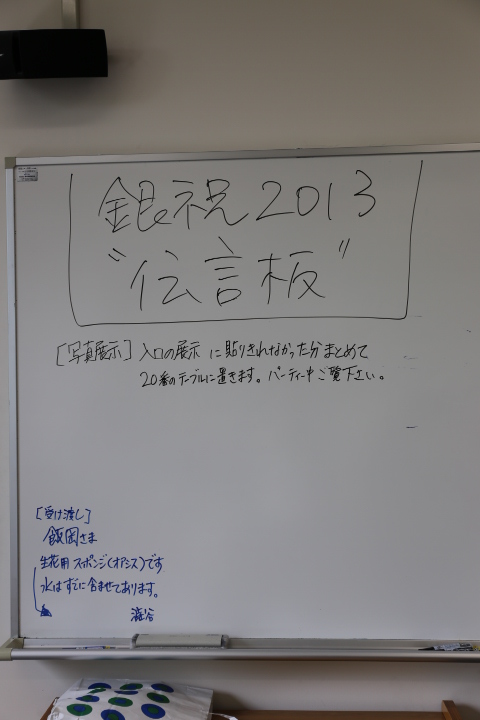 銀祝2013
"伝言板"
[写真展示] 入口の展示 に貼りきれなかった分まとめて
20番のテーブルに置きます。パーティー中ご覧下さい。
[受け渡し]
飯岡さま
生花用スポンジ(オアシス)です
水はすでに含ませてあります。
澁谷